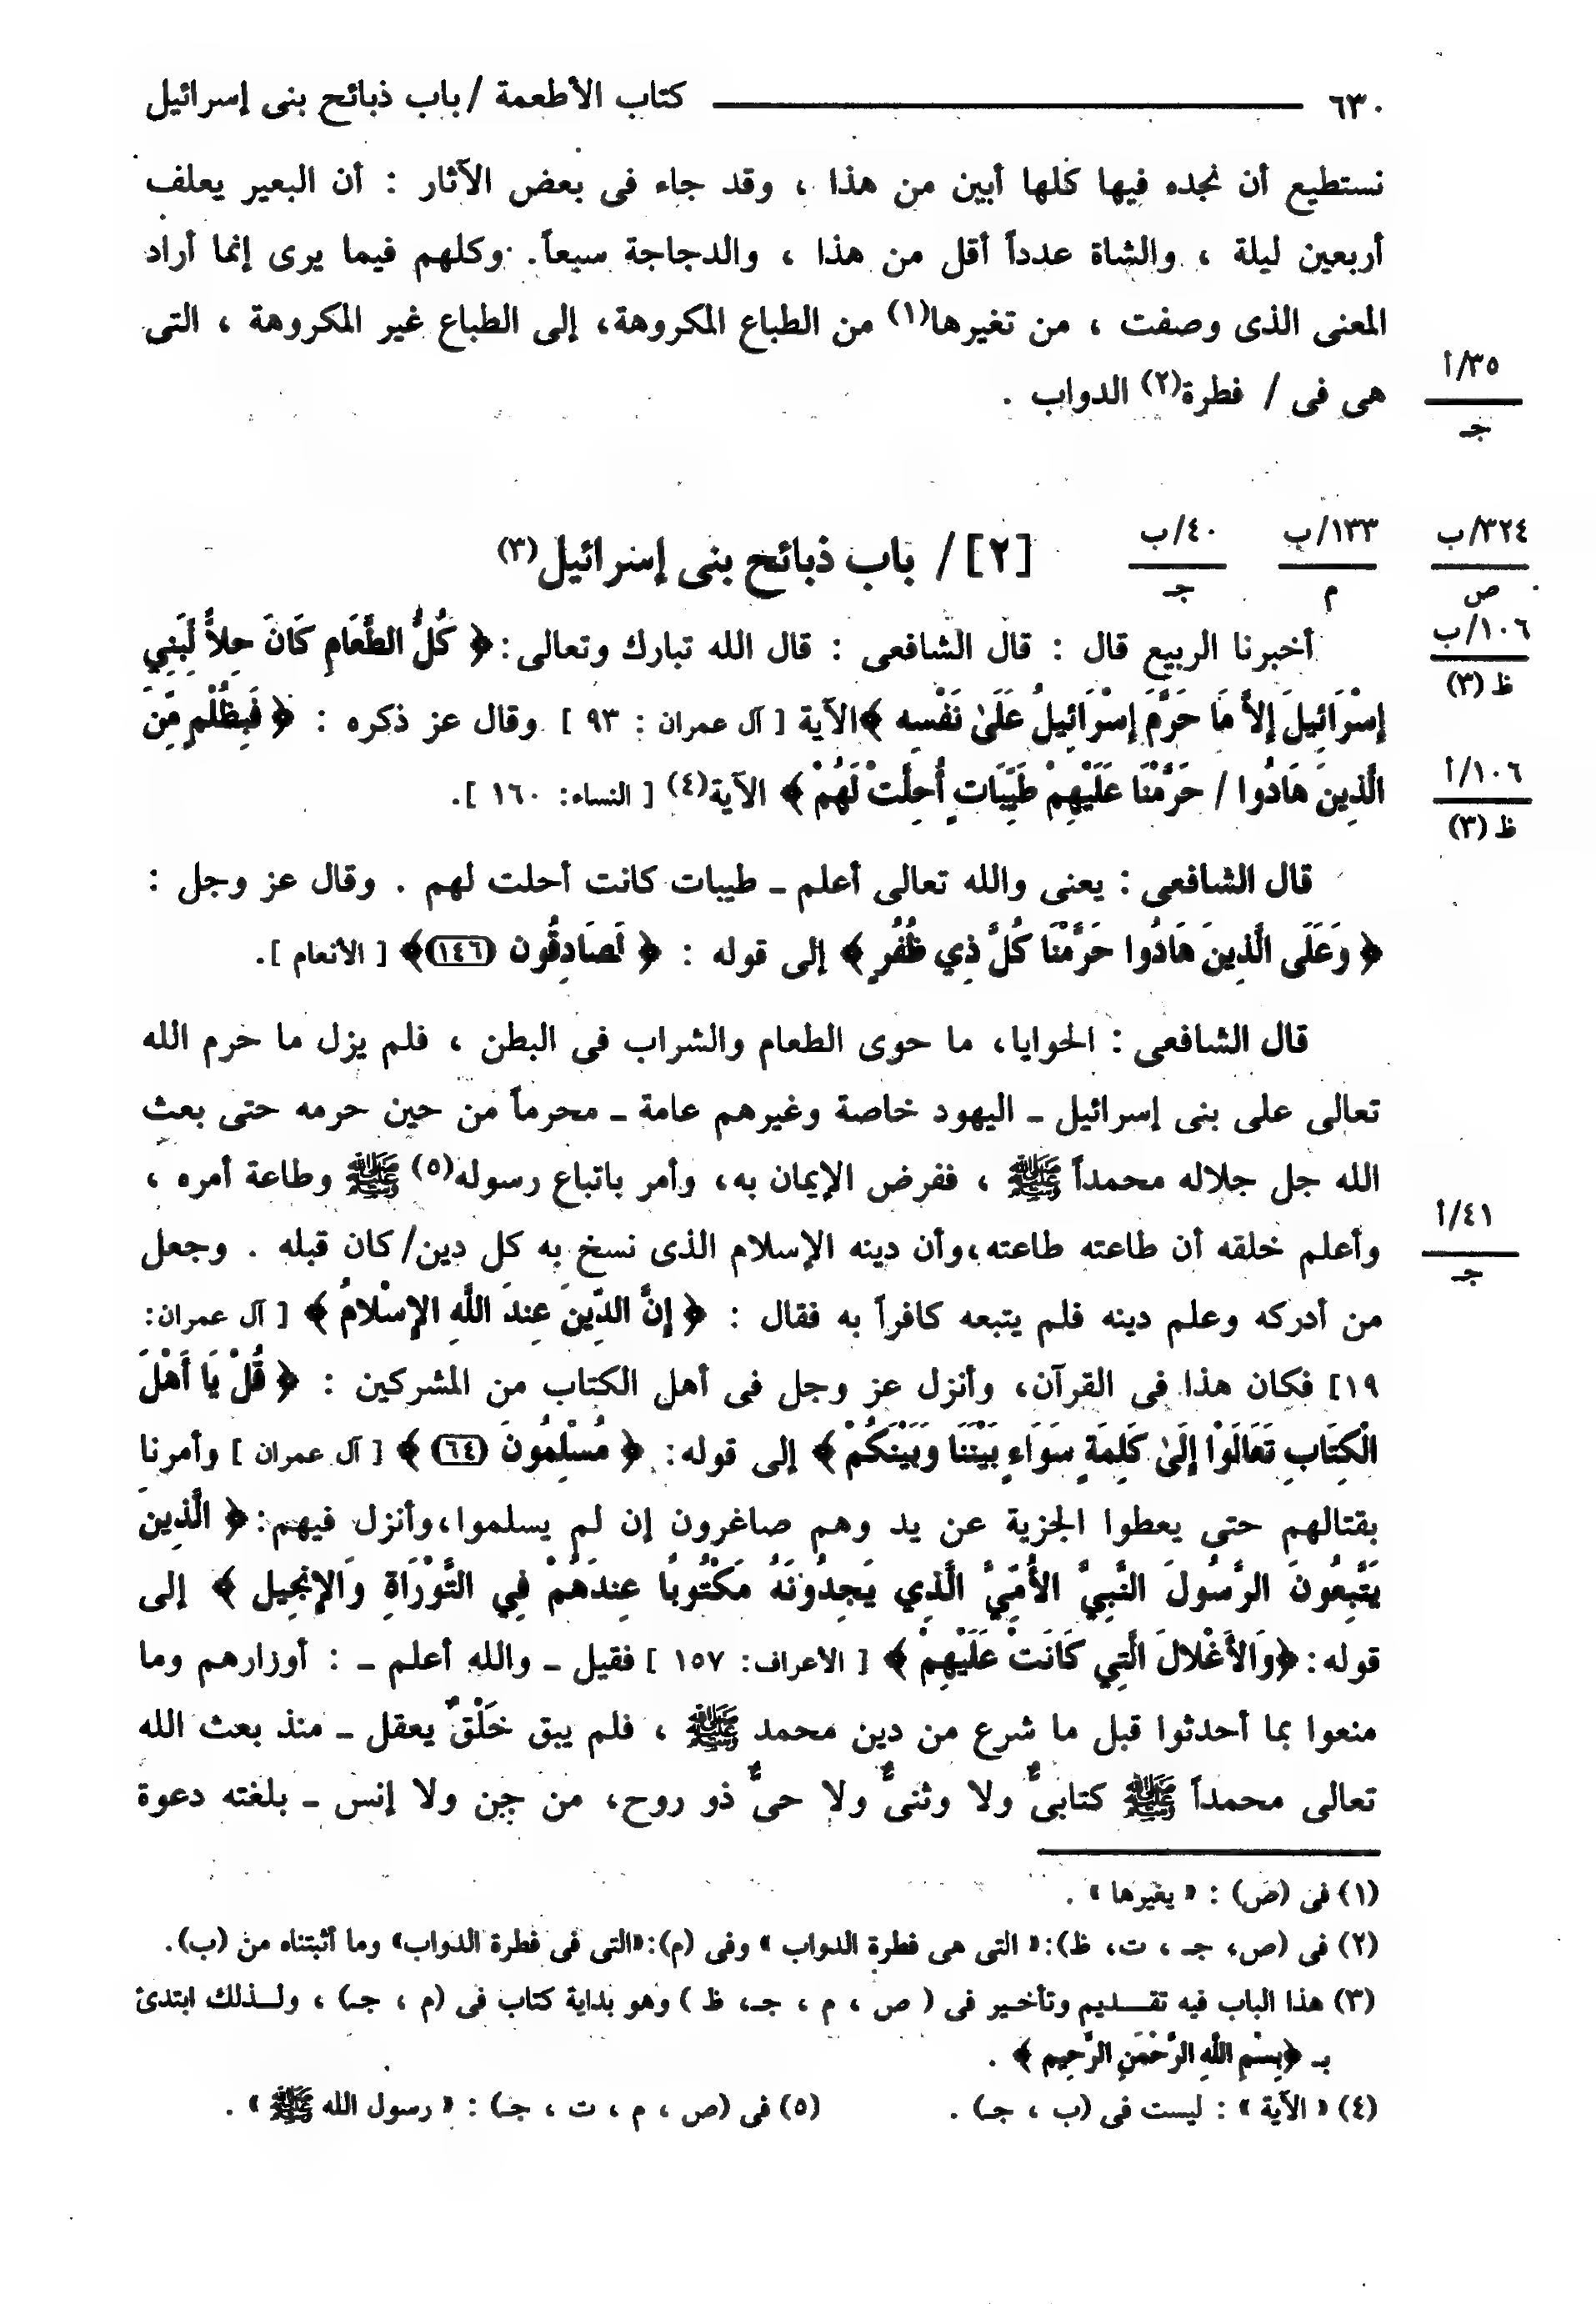 ٦٣٠ ـــــــــــ كتاب الأطعمة / باب ذبائح بنى إسرائيل
نستطيع أن نجده فيها كلها أبين من هذا ، وقد جاء فى بعض الآثار : أن البعير يعلف
أربعين ليلة ، والشاة عدداً أقل من هذا ، والدجاجة سبعاً. وكلهم فيما يرى إنما أراد
المعنى الذى وصفت ، من تغيرها(١) من الطباع المكروهة، إلى الطباع غير المكروهة ، التى
هى فى / فطرة(٢) الدواب .
٣٥/أ
جـ
[٢] / باب ذبائح بنى إسرائيل(٣)
٣٢٤/ب
ص
١٣٣/ب
م
٤٠/ب
جـ
١٠٦/ب
ظ (٣)
أخبرنا الربيع قال : قال الشافعى : قال الله تبارك وتعالى:﴿ كُلُّ الطَّعَامِ كَانَ حِلاًّ لِّبَنِي
إِسْرَائِيلَ إِلاَّ مَا حَرَّمَ إِسْرَائِيلُ عَلَىٰ نَفْسِهِ ﴾الآية [ آل عمران : ٩٣ ] وقال عز ذكره : ﴿ فَبِظُلْمٍ مِّنَ
الَّذِينَ هَادُوا / حَرَّمْنَا عَلَيْهِمْ طَيِّبَاتٍ أُحِلَّتْ لَهُمْ ﴾ الآية(٤) [ النساء: ١٦٠ ].
١٠٦/أ
ظ (٣)
قال الشافعى : يعنى والله تعالى أعلم ـ طيبات كانت أحلت لهم . وقال عز وجل :
﴿ وَعَلَى الَّذِينَ هَادُوا حَرَّمْنَا كُلَّ ذِي ظُفُرٍ ﴾ إلى قوله : ﴿ لَصَادِقُونَ (١٤٦)﴾ [ الأنعام ].
قال الشافعى : الحوايا، ما حوى الطعام والشراب فى البطن ، فلم يزل ما حرم الله
تعالى على بنى إسرائيل ـ اليهود خاصة وغيرهم عامة ـ محرماً من حين حرمه حتى بعث
الله جل جلاله محمداً ﷺ ، ففرض الإيمان به، وأمر باتباع رسوله(٥) ﷺ وطاعة أمره ،
وأعلم خلقه أن طاعته طاعته،وأن دينه الإسلام الذى نسخ به كل دين/ كان قبله . وجعل
٤١/أ
جـ
من أدركه وعلم دينه فلم يتبعه كافراً به فقال : ﴿ إِنَّ الدِّينَ عِندَ اللَّهِ الإِسْلامُ ﴾ [ آل عمران:
١٩] فكان هذا فى القرآن، وأنزل عز وجل فى أهل الكتاب من المشركين : ﴿ قُلْ يَا أَهْلَ
الْكِتَابِ تَعَالَوْا إِلَىٰ كَلِمَةٍ سَوَاءٍ بَيْنَنَا وَبَيْنَكُمْ ﴾ إلى قوله: ﴿ مُسْلِمُونَ (٦٤) ﴾ [ آل عمران ] وأمرنا
بقتالهم حتى يعطوا الجزية عن يد وهم صاغرون إن لم يسلموا،وأنزل فيهم:﴿ الَّذِينَ
يَتَّبِعُونَ الرَّسُولَ النَّبِيَّ الأُمِّيَّ الَّذِي يَجِدُونَهُ مَكْتُوبًا عِندَهُمْ فِي التَّوْرَاةِ وَالإِنجِيلِ ﴾ إلى
قوله:﴿وَالأَغْلالَ الَّتِي كَانَتْ عَلَيْهِمْ ﴾ [ الأعراف: ١٥٧ ] فقيل ـ والله أعلم ـ : أوزارهم وما
منعوا بما أحدثوا قبل ما شرع من دين محمد ﷺ ، فلم يبق خَلْقٌ يعقل ـ منذ بعث الله
تعالى محمداً ﷺ كتابىٌّ ولا وثنىٌّ ولا حىٌّ ذو روح، من جن ولا إنس ـ بلغته دعوة
(١) فى (ص) : « يغيرها » .
(٢) فى (ص، جـ ، ت، ظ):« التى هى فطرة الدواب » وفى (م):«التى فى فطرة الدواب» وما أثبتناه من (ب).
(٣) هذا الباب فيه تقـديم وتأخير فى ( ص ، م ، جـ، ظ ) وهو بداية كتاب فى (م ، جـ) ، ولـذلك ابتدئ
بـ ﴿بِسْمِ اللَّهِ الرَّحْمَنِ الرَّحِيمِ ﴾ .
(٤) « الآية » : ليست فى (ب ، جـ) .
(٥) فى (ص ، م ، ت ، جـ) : « رسول الله ﷺ » .